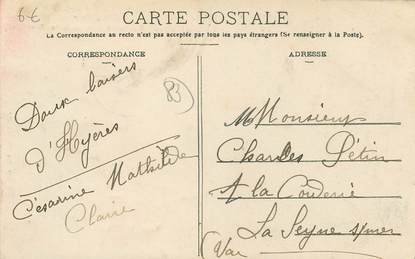 6€
CARTE POSTALE
La Correspondance au recto n'est pas acceptée par tous les pays étrangers (Se renseigner à la Poste.)
CORRESPONDANCE
ADRESSE
83
Doux baisers
d'Hyères
Césarine Mathilde
Claire
Monsieur
Charles Pétin
A la
La Seyne s/mer
(Var